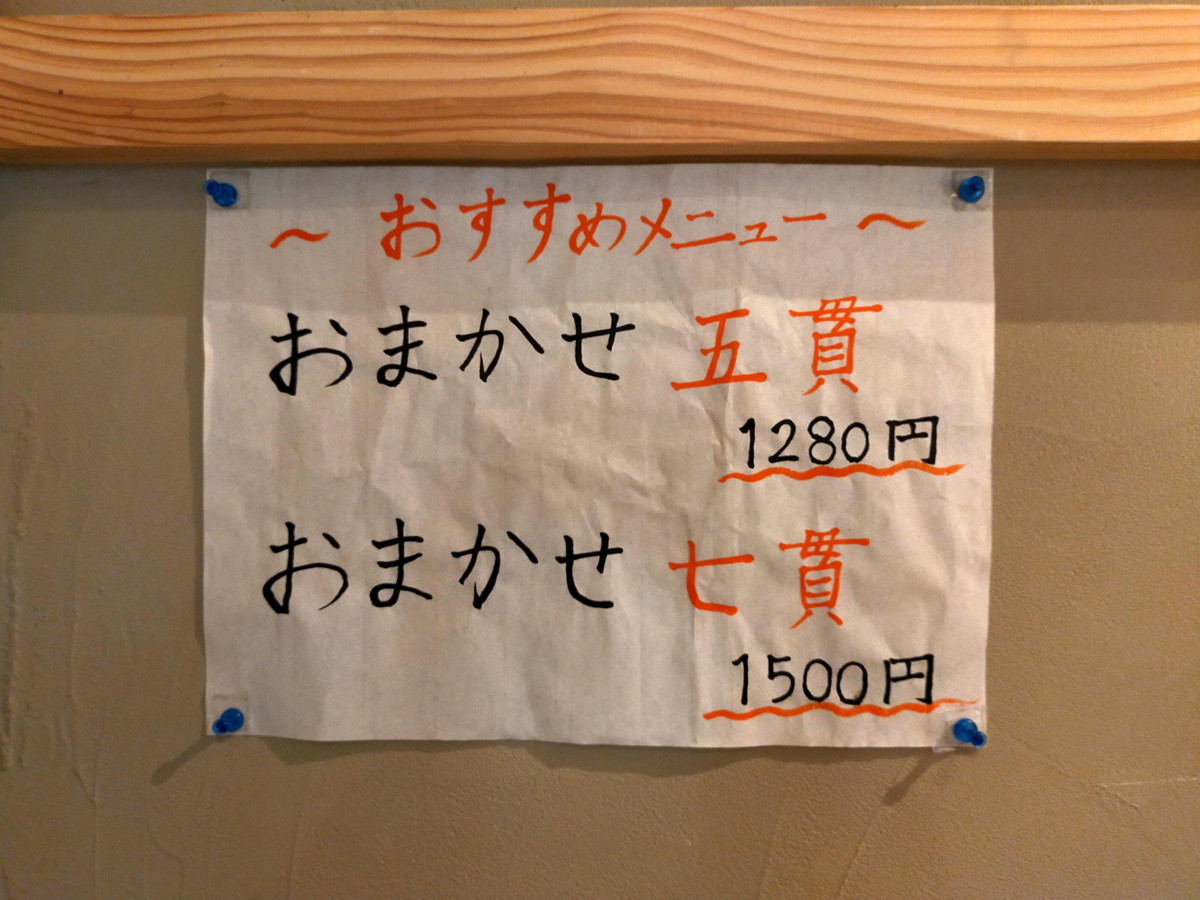 ～ おすすめメニュー ～
おまかせ 五貫
1280円
おまかせ 七貫
1500円